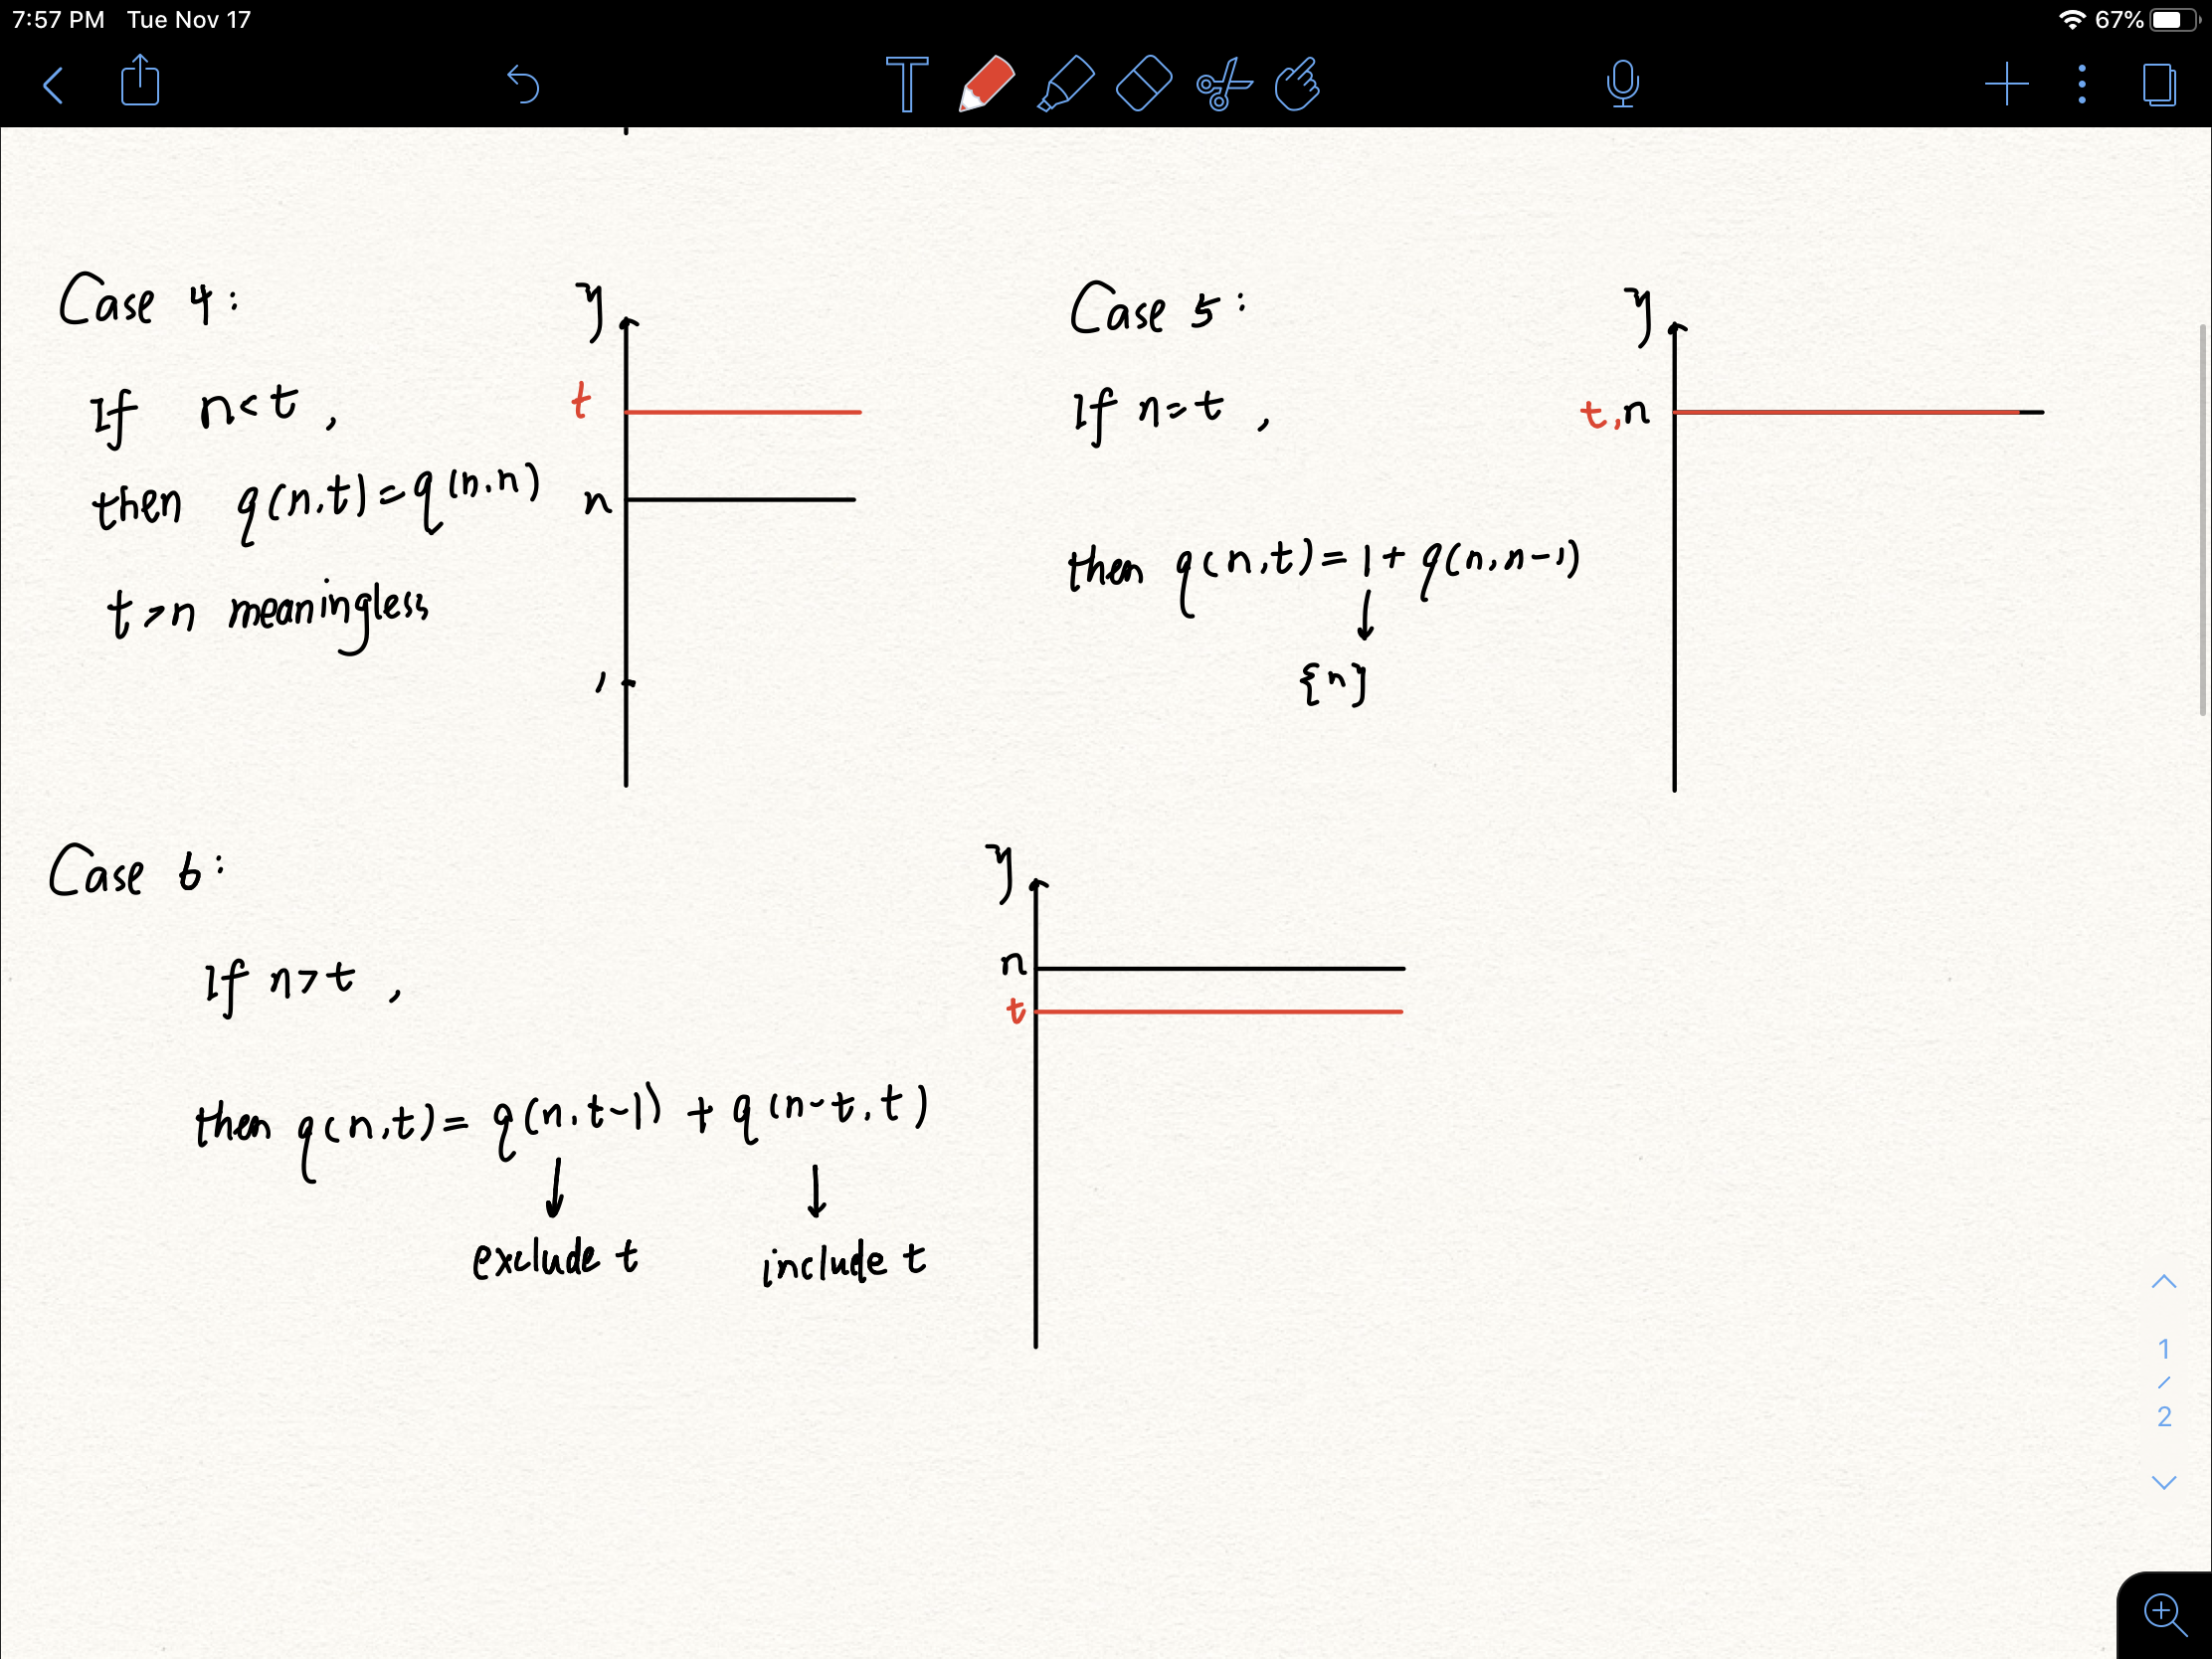 7:57 PM Tue Nov 17
67%
Case 4:
If n<t,
then q(n,t)=q(n,n)
t>n meaningless
y
t
n
1
Case 5:
If n=t,
then q(n,t)=1+q(n,n-1)
{n}
y
t,n
Case 6:
If n>t,
then q(n,t)= q(n,t-1) + q(n-t,t)
exclude t include t
y
n
t
1
/
2